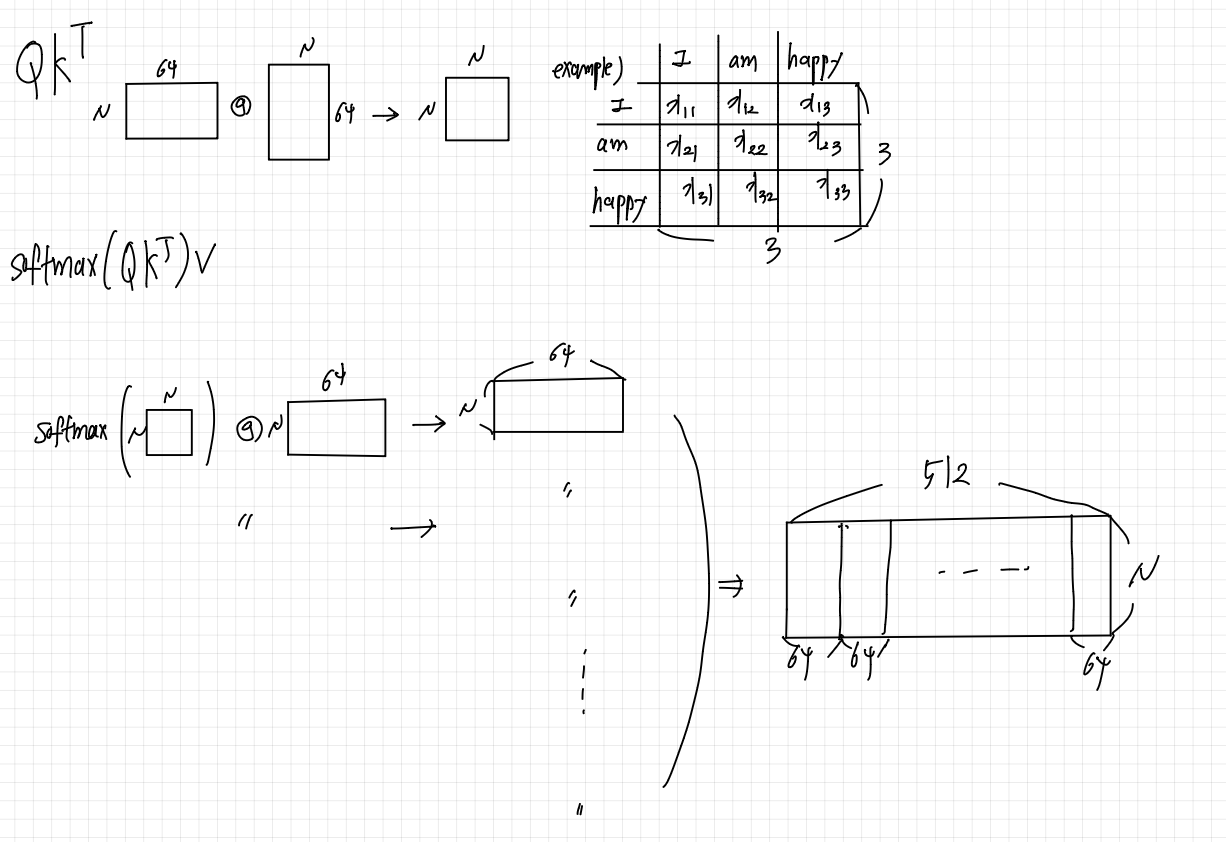 QK^T
64
N
@
N
64
→
N
N
example) I am happy
I x₁₁ x₁₂ x₁₃
am x₂₁ x₂₂ x₂₃
happy x₃₁ x₃₂ x₃₃
3
3
softmax(QK^T)V
softmax( N N ) @ N 64 → N 64
〃 → 〃
〃
〃
⇒
512
N
64 64 - - - 64